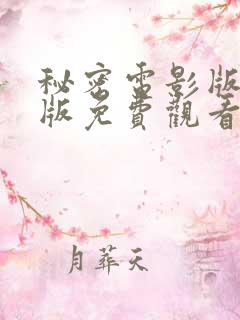 秘密電影版
版免費觀看
月葬天